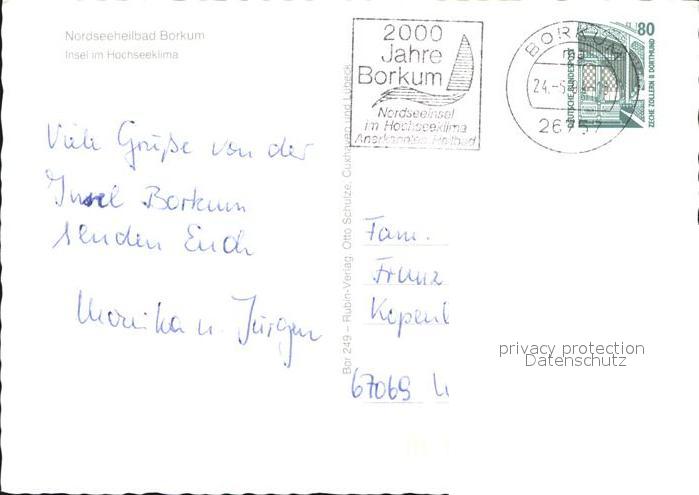 Nordseeheilbad Borkum
Insel im Hochseeklima
2000
Jahre
Borkum
Nordseeinsel
im Hochseeklima
Anerkanntes Heilbad
BORKUM
24.-5.
26757
80
DEUTSCHE BUNDESPOST
ZECHE ZOLLERN II DORTMUND
Viele Grüße von der
Insel Borkum
senden Euch
Monika u. Jürgen
Bor 249 – Rubin-Verlag, Otto Schulze, Cuxhaven und Lübeck
Fam.
Franz
67069
privacy protection
Datenschutz